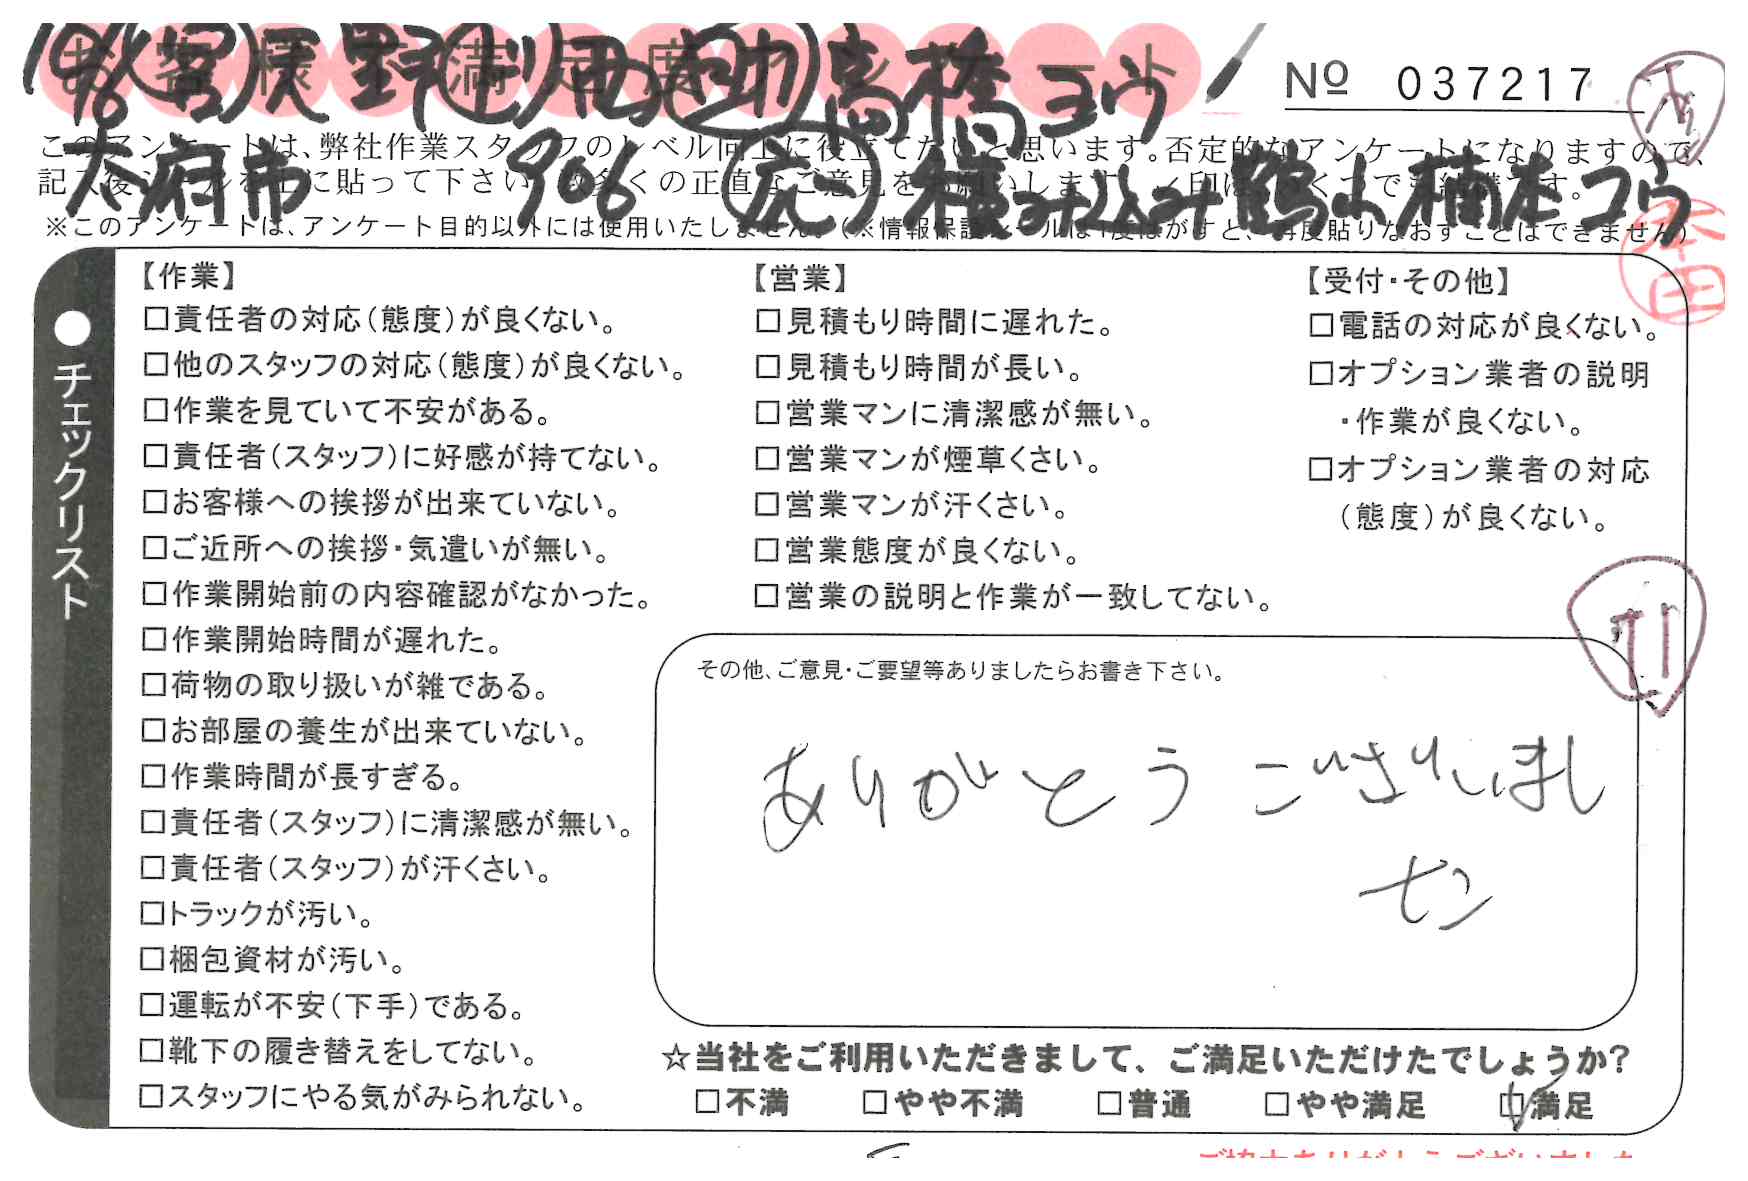 お客様不満足度アンケート
㊗ 天野 西 高橋 ヨウ
No 037217
大府市 906 横井 鶴山 楠本 コウ
このアンケートは、弊社作業スタッフのレベル向上に役立てたいと思います。否定的なアンケートになりますので、
記入後シールを上に貼って下さい。数多くの正直なご意見をお願いします。
※このアンケートは、アンケート目的以外には使用いたしません。(※情報保護シールは1度はがすと、再度貼りなおすことはできません)
本田
●チェックリスト
【作業】
□責任者の対応(態度)が良くない。
□他のスタッフの対応(態度)が良くない。
□作業を見ていて不安がある。
□責任者(スタッフ)に好感が持てない。
□お客様への挨拶が出来ていない。
□ご近所への挨拶・気遣いが無い。
□作業開始前の内容確認がなかった。
□作業開始時間が遅れた。
□荷物の取り扱いが雑である。
□お部屋の養生が出来ていない。
□作業時間が長すぎる。
□責任者(スタッフ)に清潔感が無い。
□責任者(スタッフ)が汗くさい。
□トラックが汚い。
□梱包資材が汚い。
□運転が不安(下手)である。
□靴下の履き替えをしてない。
□スタッフにやる気がみられない。
【営業】
□見積もり時間に遅れた。
□見積もり時間が長い。
□営業マンに清潔感が無い。
□営業マンが煙草くさい。
□営業マンが汗くさい。
□営業態度が良くない。
□営業の説明と作業が一致してない。
【受付・その他】
□電話の対応が良くない。
□オプション業者の説明
・作業が良くない。
□オプション業者の対応
(態度)が良くない。
その他、ご意見・ご要望等ありましたらお書き下さい。
ありがとうございまし
☆当社をご利用いただきまして、ご満足いただけたでしょうか?
□不満 □やや不満 □普通 □やや満足 □満足
ご協力ありがとうございました